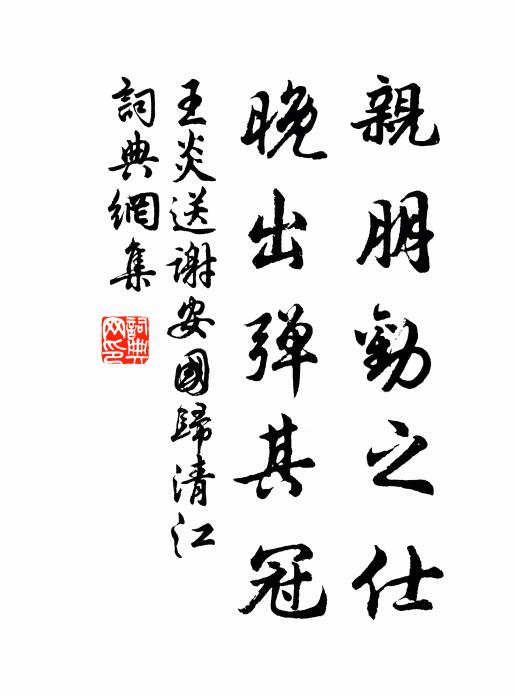 親朋勸之仕
晚出弹其冠
王炎送謝安國歸清江
詞典網集
詞典
网印